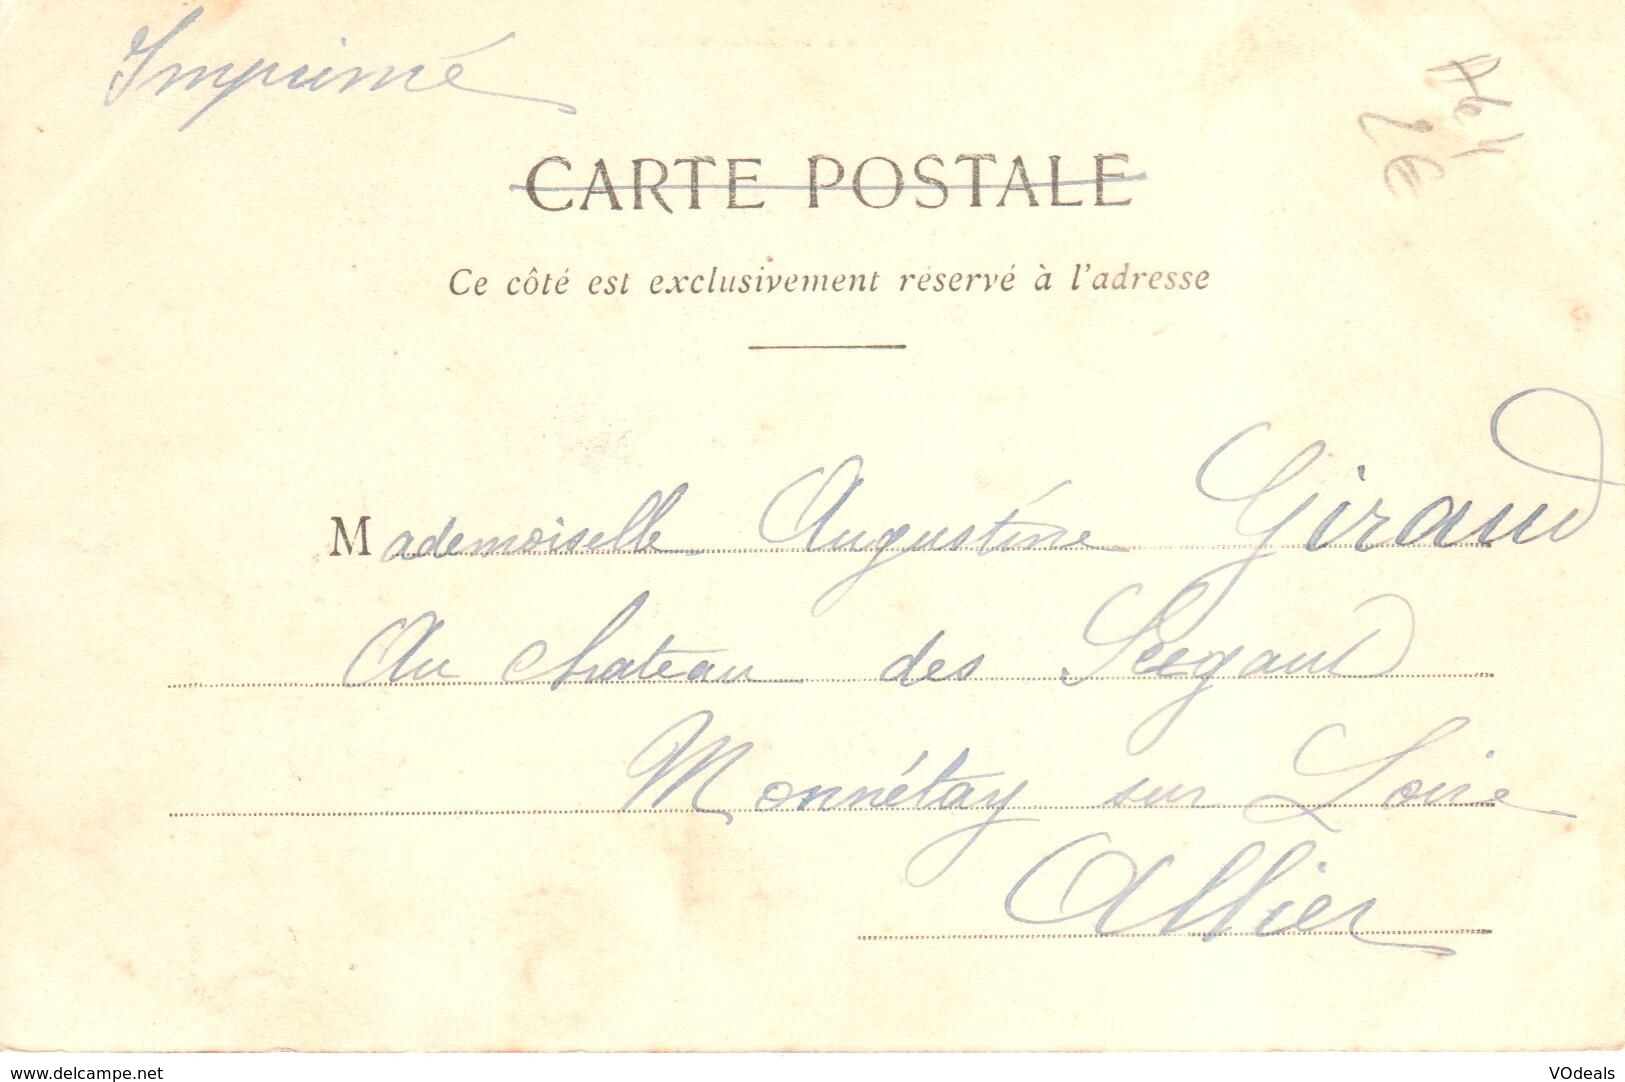 Imprimé
2€
CARTE POSTALE
Ce côté est exclusivement réservé à l'adresse
Mademoiselle Augustine Giraud
Au chateau des Segaud
Monnétay sur Loire
Allier
www.delcampe.net
VOdeals